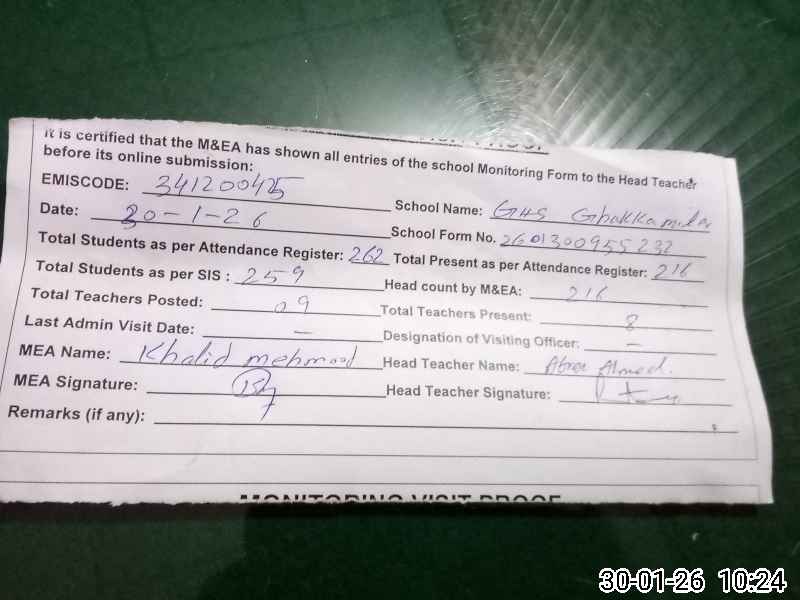 It is certified that the M&EA has shown all entries of the school Monitoring Form to the Head Teacher
before its online submission:
EMISCODE: 34120045 School Name: GHS Ghakkamitar
Date: 30-1-26 School Form No. 2601300955232
Total Students as per Attendance Register: 262 Total Present as per Attendance Register: 216
Total Students as per SIS : 259 Head count by M&EA: 216
Total Teachers Posted: 09 Total Teachers Present: 8
Last Admin Visit Date: – Designation of Visiting Officer: –
MEA Name: Khalid mehmood Head Teacher Name: Ahmed.
MEA Signature: Head Teacher Signature:
Remarks (if any):
MONITORING VISIT PROOF
30-01-26 10:24